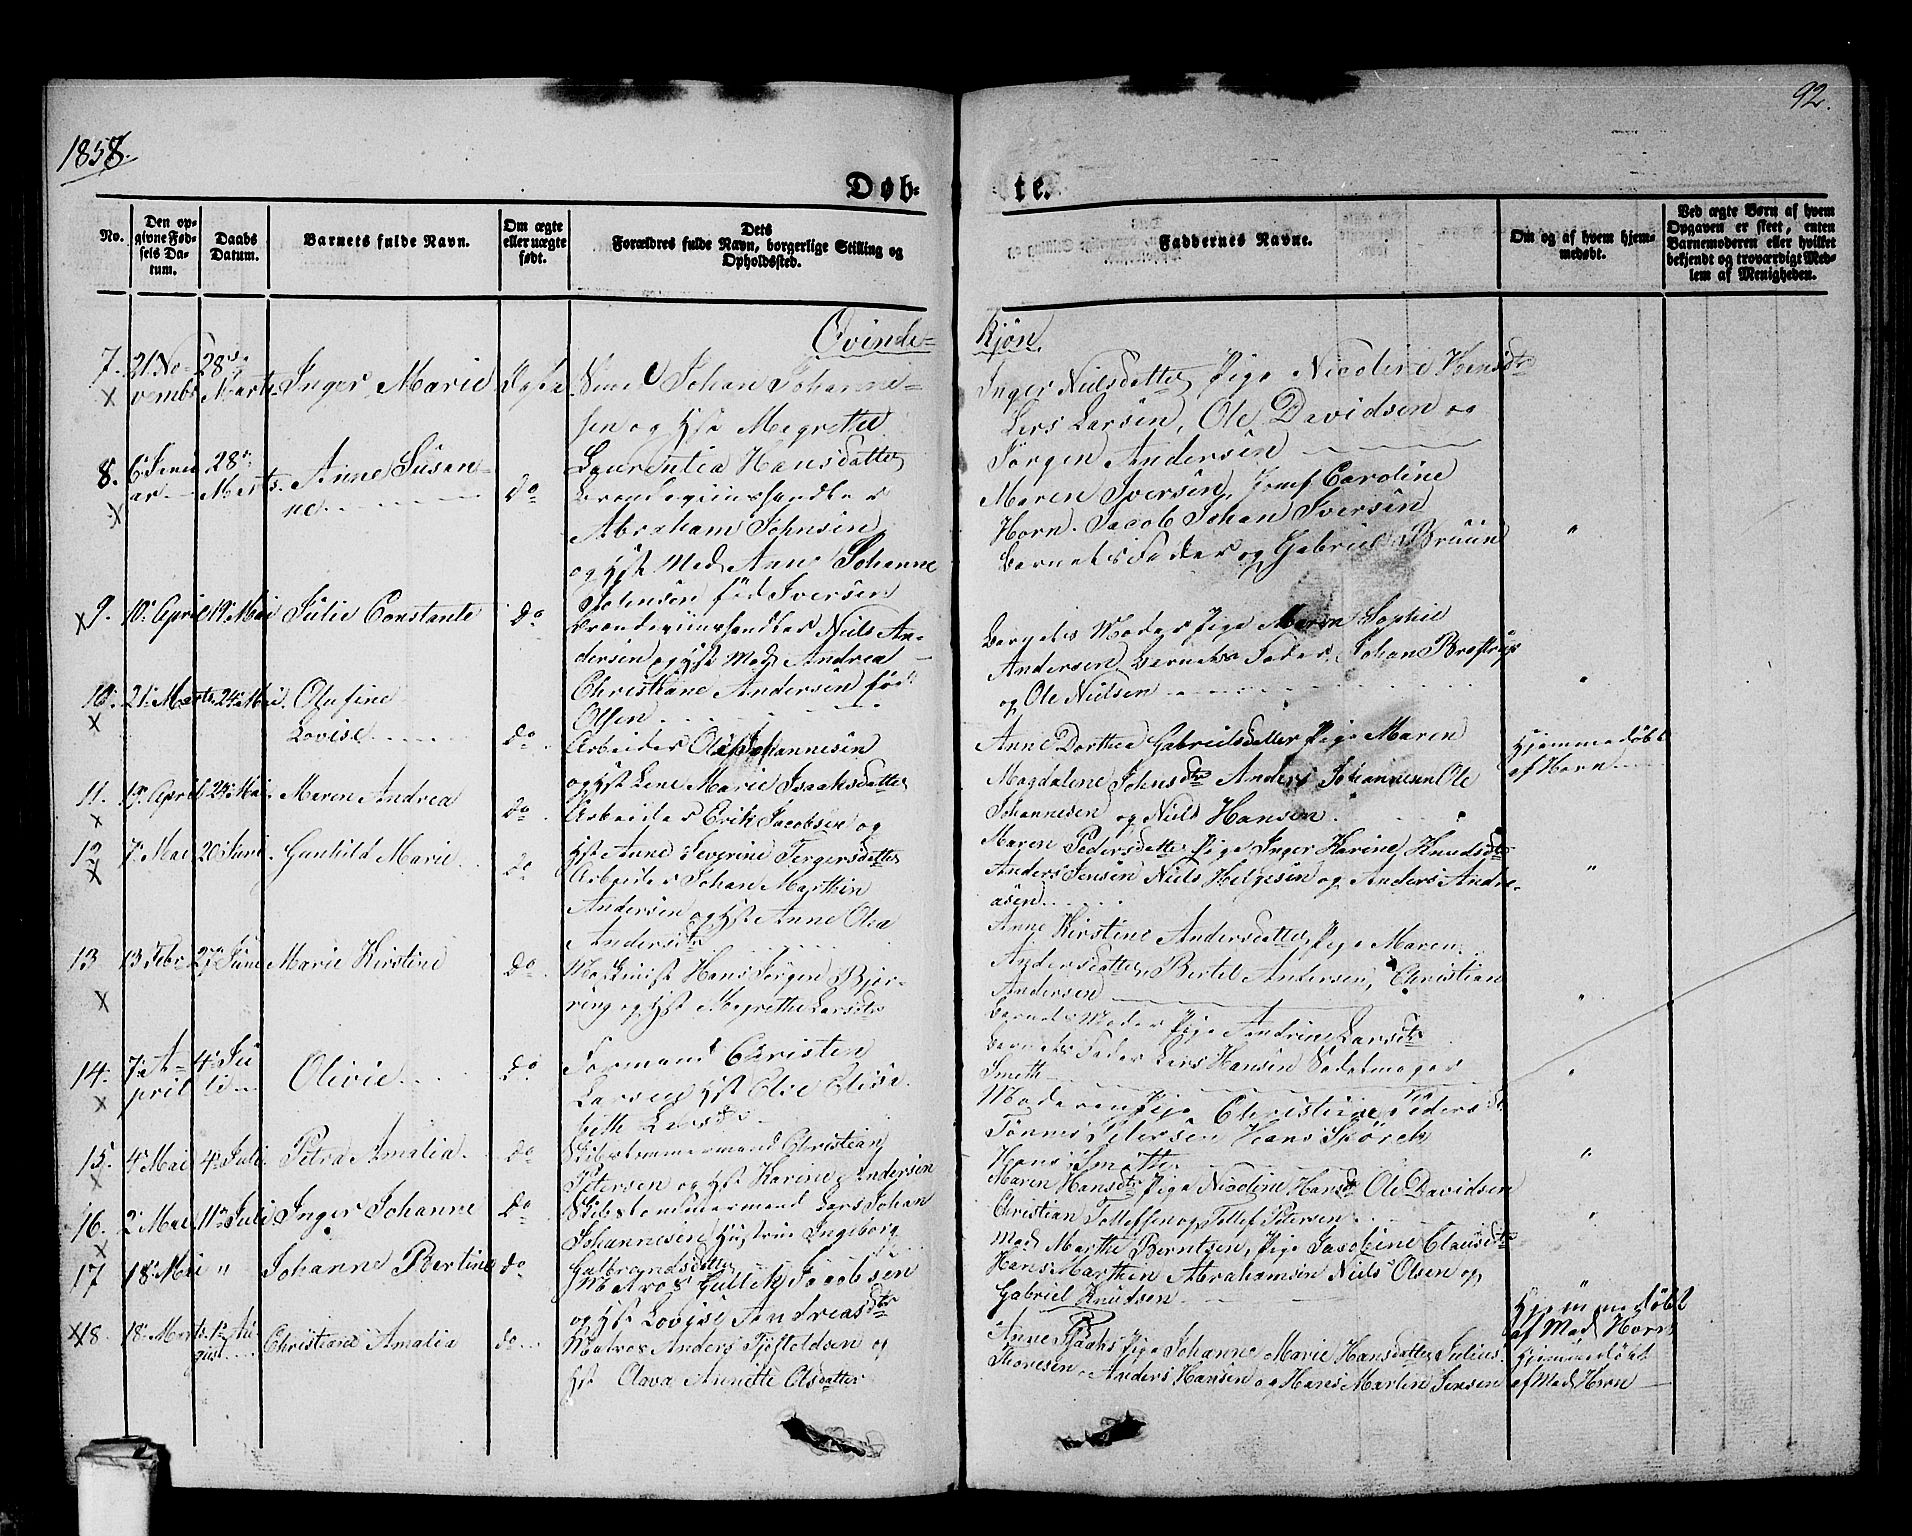 92.
1858.
Døb-
te.
No.
Den op-
givne Fød-
sels Da-
tum.
Daabs
Datum.
Barnets fulde Navn.
Om ægte
eller uægte
født.
Dets
Forældres fulde Navn, borgerlige Stilling og
Opholdssted.
Faddernes Navne.
Om og af hvem hjem-
medøbt.
Ved ægte Børn af hvem
Opgaven er skeet, enten
Barnemoderen eller hvilket
bekjendt og troværdigt Med-
lem af Menigheden.
Qvinde-
Kjøn
7.
21 No-
vembr
28
Marts
Inger Marie
Johan Johanne-
sen og Hst Megrethe
Laurentia Hansdatter
Inger Nielsdatter, Pige Nicoline Hansdtr
Lars Larsen, Ole Davidsen og
Jørgen Andersen
8.
6 Janu
ar
28
Marts
Anne Susan-
ne
do
Brændeviinshandler
Abraham Johnsen
og Hst Mad Anne Johanne
Johnsen fød Iversen
Maren Iversen, Jomf Caroline
Horn. Jacob Johan Iversen
Barnets Fader og Gabriel Bruun
"
9.
10 April
19 Mai
Julie Constante
do
Brændeviinshandler Niels An-
dersen og Hst Mad Andrea
Christiane Andersen fød
Olsen
Barnets Moder, Pige Maren Sophie
Andersen, Barnets Fader, Johan Brostrup
og Ole Nielsen
"
10.
21 Marts
24 Mai
Olufine
Lovise
do
Arbeider Ole Johannesen
og Hst Lene Marie Isaaksdatter
Anne Dorthea Gabrielsdatter Pige Maren
Magdalene Johnsdtr Anders Johannesen Ole
Johannesen og Niels Hansen
Hjemmedøbt
af Horn
11.
15 April
24 Mai
Maren Andrea
do
Arbeider Erik Jacobsen og
Hst Anne Severine Tergersdatter
Maren Pedersdatter Pige Inger Karine Knudsdtr
Anders Jensen Niels Helgesen og Anders Andre-
asen
"
12
7 Mai
20 Juni
Gunhild Marie
do
Arbeider Johan Marthin
Andersen og Hst Anne Olea
Andersdtr
Anne Kirstine Andersdatter, Pige Maren
Andersdatter, Bertel Andersen, Christian
Andersen
"
13
13 Febr
27 Juni
Marie Kirstine
do
Maskinist Hans Jørgen Bjer-
ring og Hst Megrethe Larsdtr
Barnets Moder Pige Andrine Larsdtr
Barnets Fader Lars Hansen Sadelmager
Smith
"
14.
7 A-
pril
4 Ju
li
Olivie
do
Formand Christen
Larsen Hst Elie Elisa-
beth Larsdtr
Moderen Pige Christine Peders
Tønnes Petersen Hans Skörch
Hans Smith
"
15.
4 Mai
4 Juli
Petra Amalia
do
Skibstømmermand Christian
Petersen og Hst Karine Andersen
Maren Hansdtr Pige Nicoline Hansd Ole Davidsen
Christian Tollefsen og Tollef Petersen
"
16.
2 Mai
11 Juli
Inger Johanne
do
Skibstømmermand Lars Johan
Johannesen Hustrue Ingeborg
Gulbrandsdatter
Mad Marthe Berntsen, Pige Jacobine Clausdtr
Hans Marthin Abrahamsen Niels Olsen og
Gabriel Knudsen
"
17
18 Mai
"
Johanne Bertine
do
Matros Gullek Jacobsen
og Hst Lovise Andreasdtr
Hjemmedøbt
af Mad Horn
18.
18 Marts
1 Au
gust
Christiane Amalia
do
Matros Anders Tjøstoldsen og
Hst Olava Annette Olsdatter
Anne Isaaks Pige Johanne Marie Hansdatter Julius
Thoresen Anders Hansen og Hans Martin Jensen
Hjemmedøbt
af Mad Horn